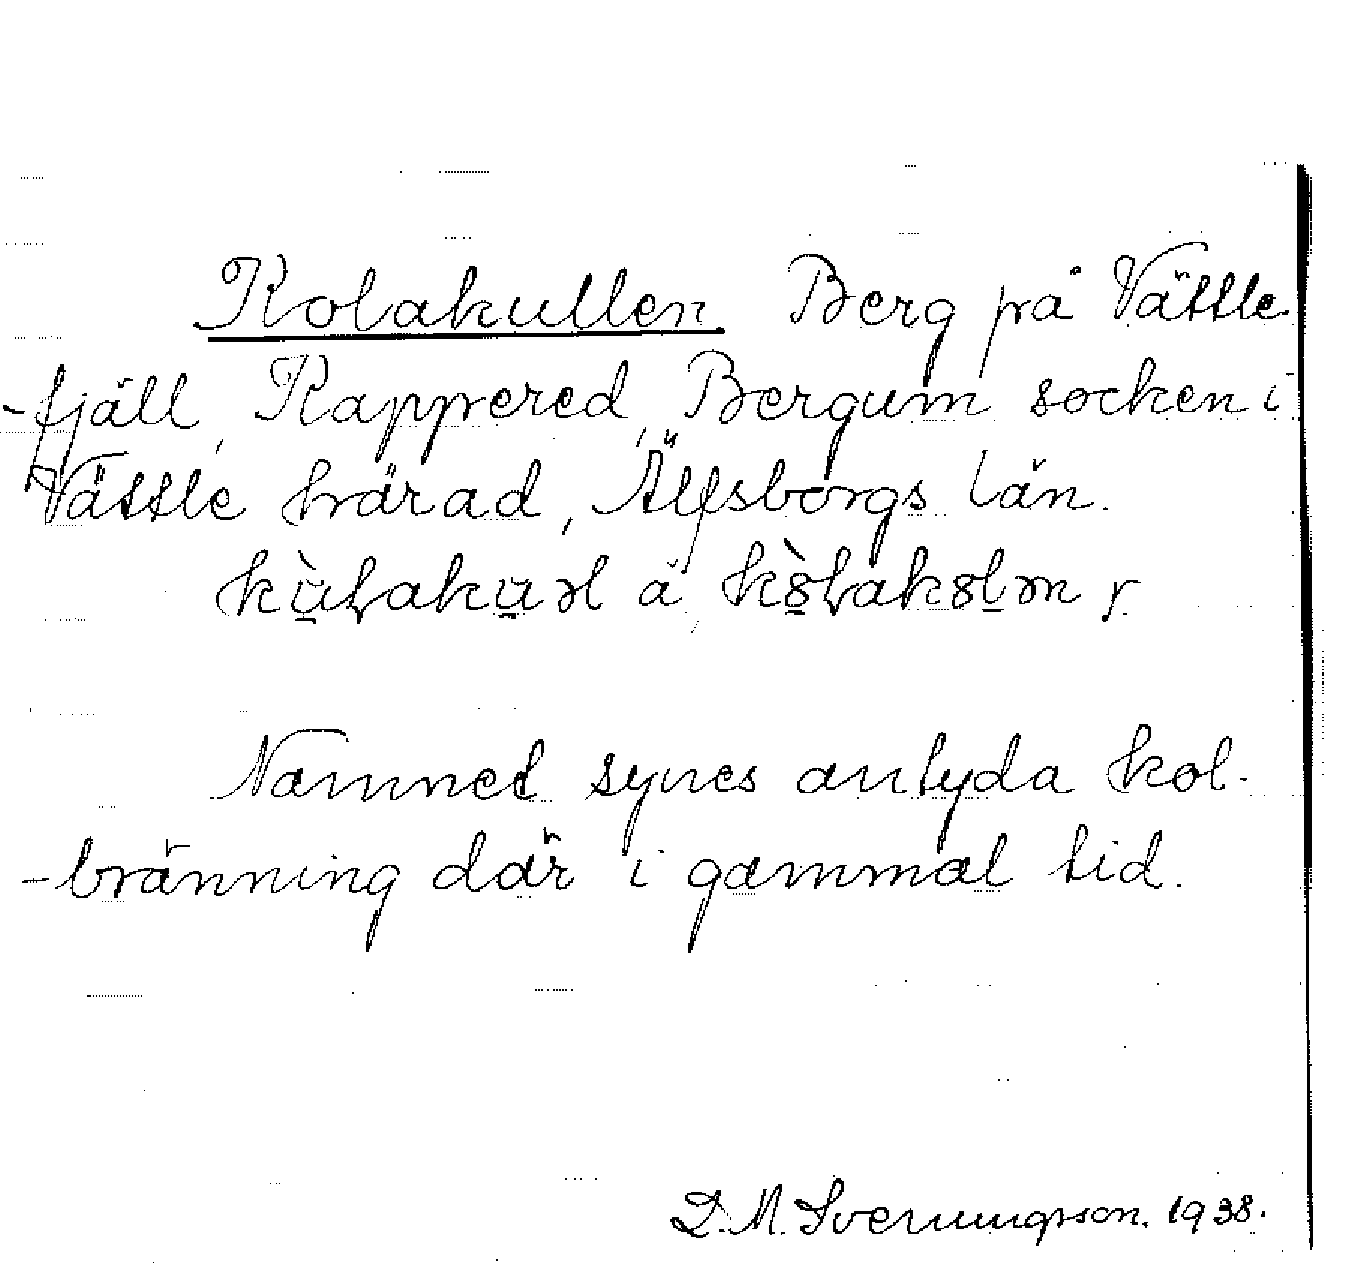 Kolakullen Berg på Vättle-
-fjäll, Kappered, Bergum socken i
Vättle härad, Älfsborgs län.
å
Namnet synes antyda kol-
-bränning där i gammal tid.
D. M. Svenungsson. 1938.